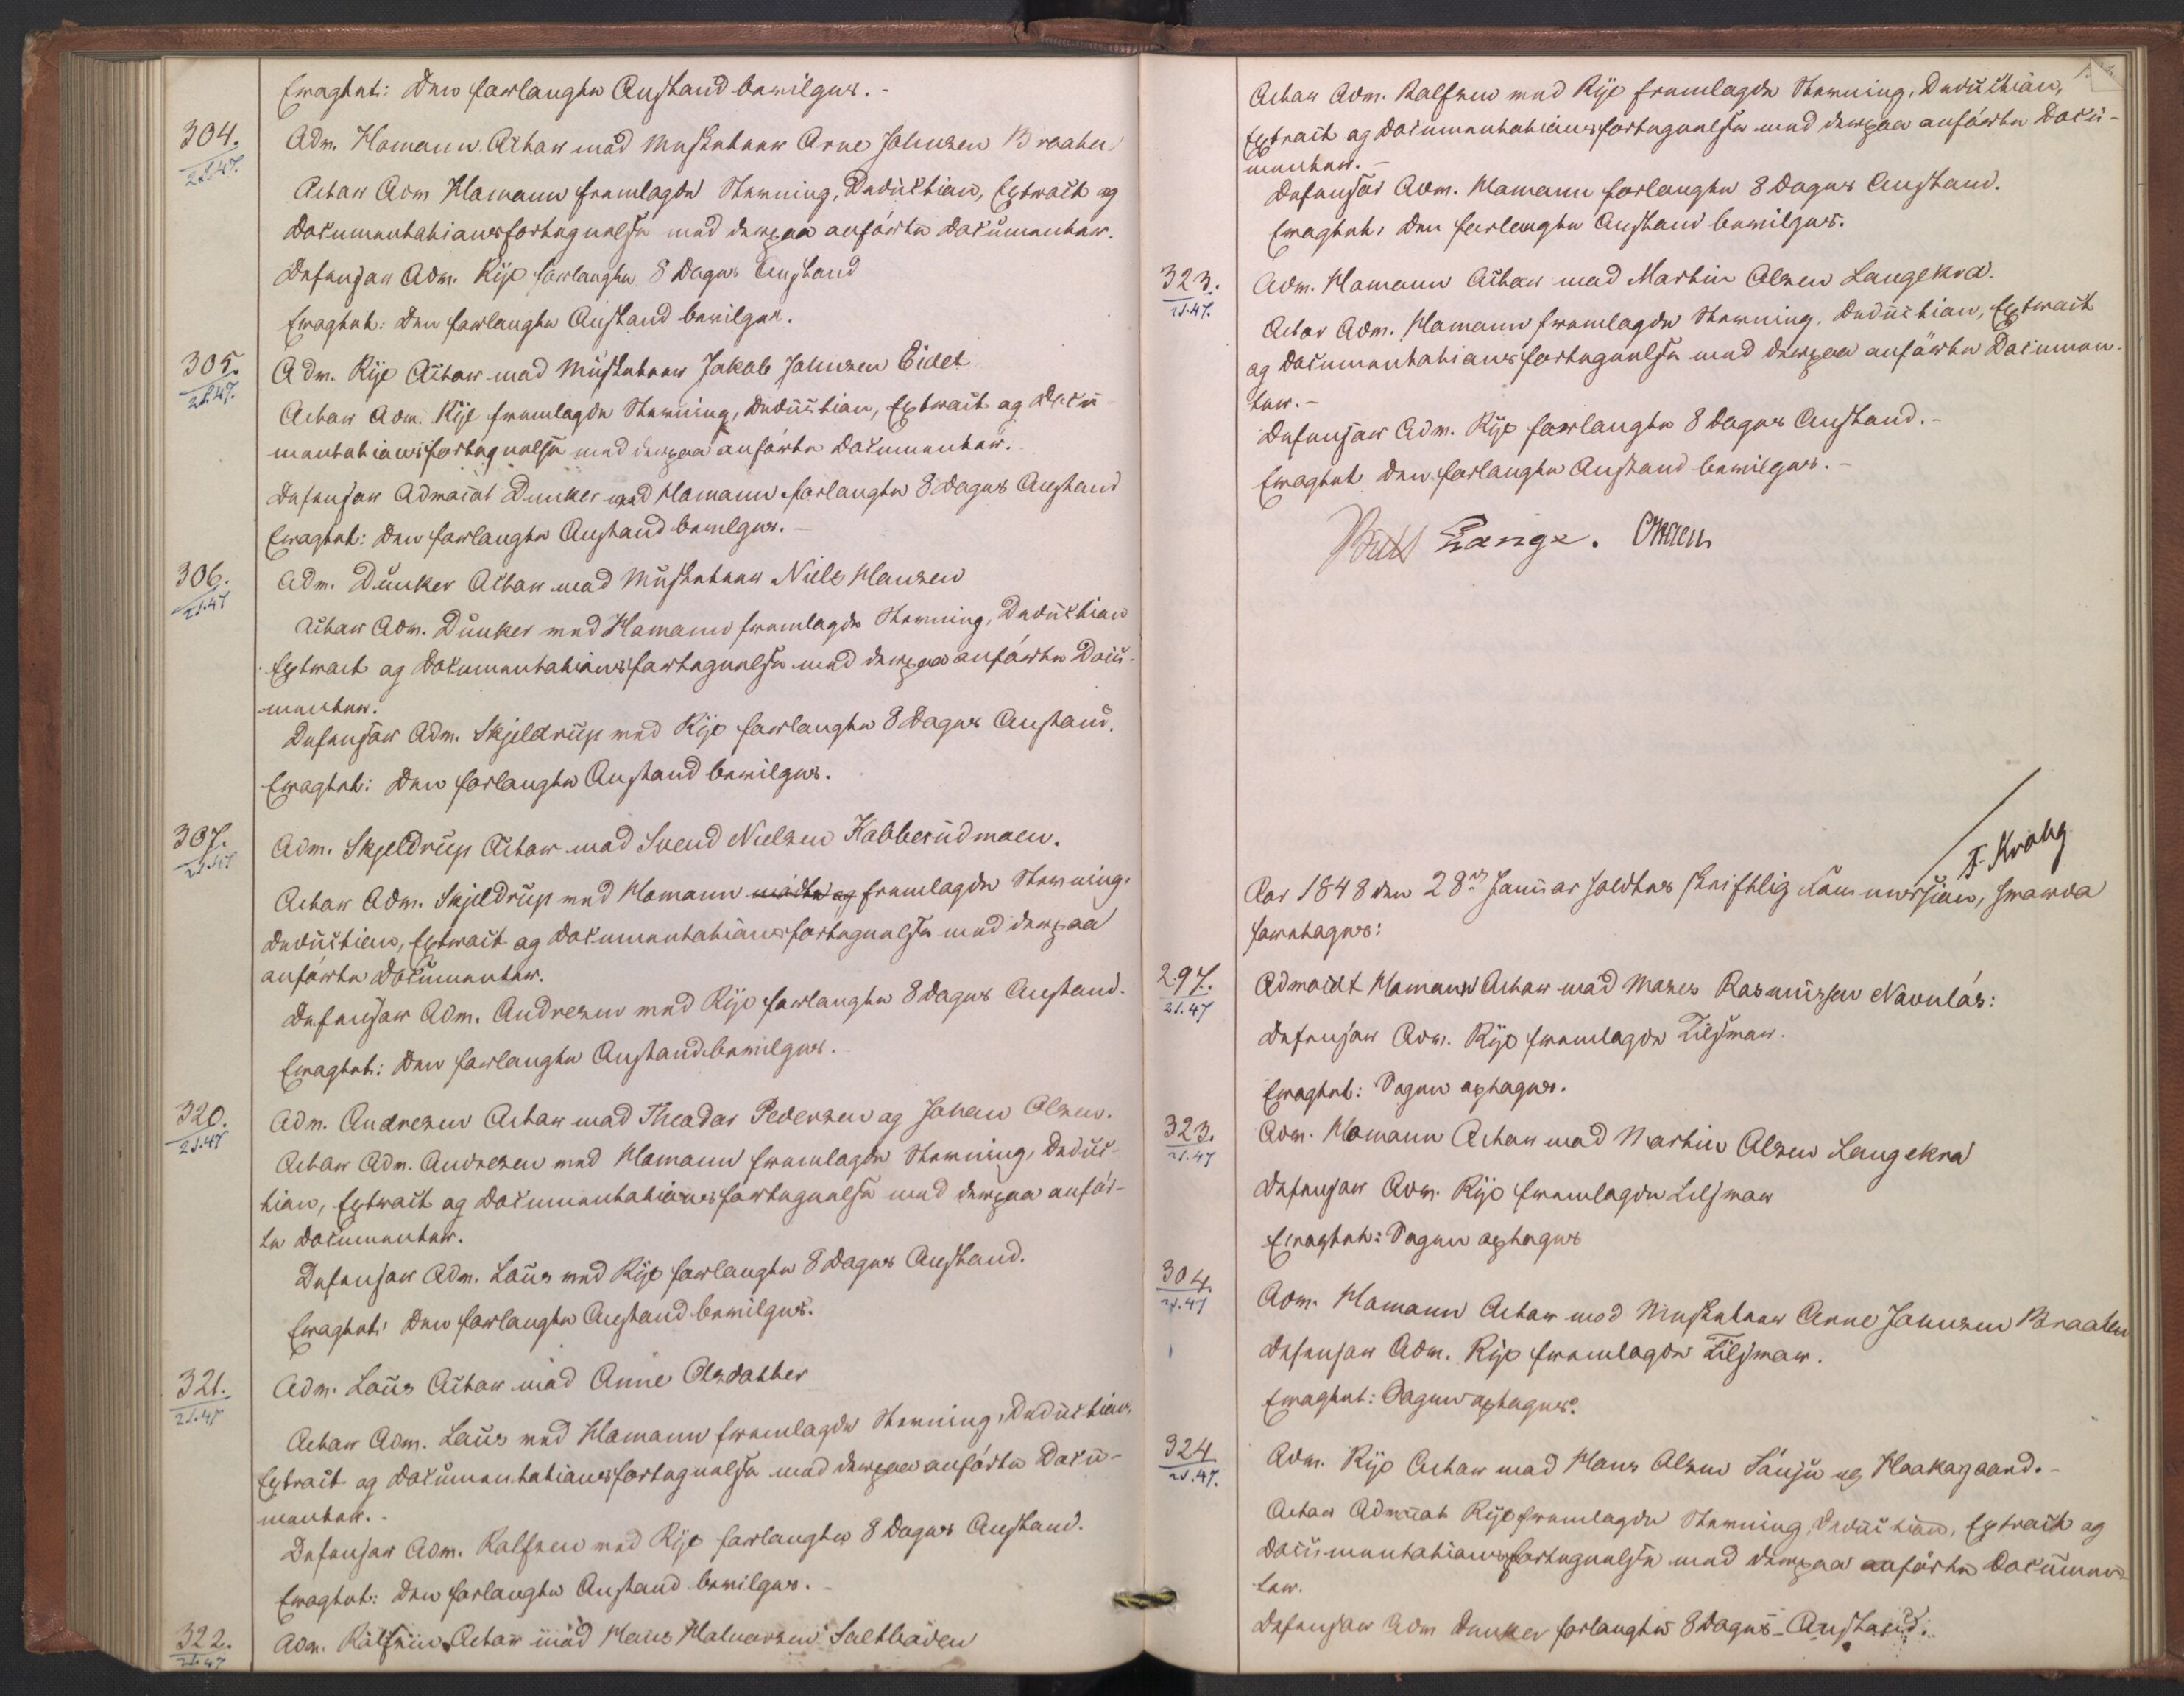 Eragtet: Den forlangte Anstand bevilges. -
304. Adv. Homann Actor mod Musketeer Arne Johnsen Braaten
2 1.47. Actor Adv Homann fremlagde Stevning, Deduction, Extract og
Documentationsfortegnelse med derpaa anførte Documenter.
Defensor Adv. Rye forlangte 8 Dages Anstand
Eragtet: Den forlangte Anstand bevilges.
305. Adv. Rye Actor mod Musketeer Jakob Johnsen Eidet
2 1.47. Actor Adv. Rye fremlagde Stevning, Deduction, Extract og Docu
mentationsfortegnelse med derpaa anførte Documenter.
Defensor Advocat Dunker med Homann forlangte 8 Dages Anstand
Eragtet: Den forlangte Anstand bevilges. -
306. Adv. Dunker Actor mod Musketeer Niels Hansen
2 1.47 Actor Adv. Dunker med Homann fremlagde Stevning, Deduction
Extract og Documentationsfortegnelse med derpaa anførte Docu-
menter.
Defensor Adv. Skjeldrup med Rye forlangte 8 Dages Anstand.
Eragtet: Den forlangte Anstand bevilges.
307. Adv. Skjeldrup Actor mod Svend Nielsen Kabberudmoen.
2 1.47 Actor Adv. Skjeldrup med Homann mødte og fremlagde Stevning,
Deduction, Extract og Documentationsfortegnelse med derpaa
anførte Documenter.
Defensor Adv. Andresen med Rye forlangte 8 Dages Anstand.
Eragtet: Den forlangte Anstand bevilges.
320. Adv. Andresen Actor mod Theodor Pedersen og Johan Olsen.
2 1.47 Actor Adv. Andresen med Homann fremlagde Stevning, Deduc-
tion, Extract og Documentationsfortegnelse med derpaa anfør-
te Documenter.
Defensor Adv. Lous med Rye forlangte 8 Dages Anstand.
Eragtet: Den forlangte Anstand bevilges.
321. Adv. Lous Actor mod Anne Olsdatter
2 1.47 Actor Adv. Lous med Homann fremlagde Stevning, Deduction,
Extract og Documentationsfortegnelse med derpaa anførte Docu-
menter. -
Defensor Adv. Rolfsen med Rye forlangte 8 Dages Anstand.
Eragtet: Den forlangte Anstand bevilges. -
322. Adv. Rolfsen Actor mod Hans Halvorsen Saltboden
2 1.47
Actor Adv. Rolfsen med Rye fremlagde Stevning, Deduction,
Extract og Documentationsfortegnelse med derpaa anførte Docu-
menter. -
Defensor Adv. Homann forlangte 8 Dages Anstand.
Eragtet: Den forlangte Anstand bevilges.
323. Adv. Homann Actor mod Martin Olsen Langekra.
2 1.47. Actor Adv. Homann fremlagde Stevning, Deduction, Extract
og Documentationsfortegnelse med derpaa anførte Documen-
ter. -
Defensor Adv. Rye forlangte 8 Dages Anstand. -
Eragtet Den forlangte Anstand bevilges. -
Bull Lange.
F. Krohg
Aar 1848 den 28de Januar holdtes skriftlig Extra session, hvorda
foretages:
297. Advocat Homann Actor mod Moses Rasmussen Navnløs:
2 1.47 Defensor Adv. Rye fremlagde Tilsvar.
Eragtet: Sagen optages.
323. Adv. Homann Actor mod Martin Olsen Langekra
2 1.47 Defensor Adv. Rye fremlagde Tilsvar
Eragtet: Sagen optages
304 Adv. Homann Actor mod Musketeer Arne Johnsen Braaten
2 1.47 Defensor Adv. Rye fremlagde Tilsvar.
Eragtet: Sagen optages.
324 Adv. Rye Actor mod Hans Olsen Lånju eg Haakagaard. -
2 1.47. Actor Advocat Rye fremlagde Stevning, Deduction, Extract og
Documentationsfortegnelse med derpaa anførte Documen-
ter.
Defensor Adv Dunker forlangte 8 Dages Anstand.